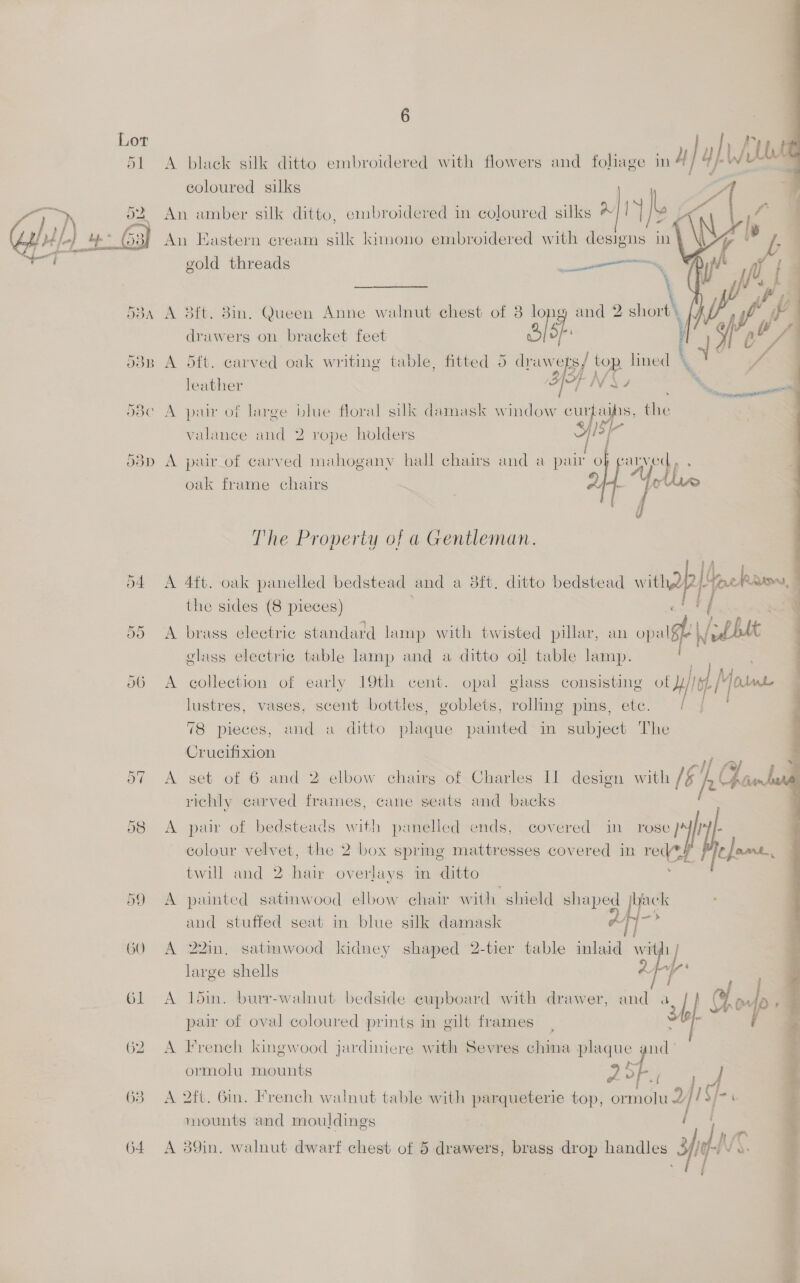 6
Lot
51 A black silk ditto embroidered with flowers and foliage in
coloured silks
52 An amber silk ditto, embroidered in coloured silks
53 An Eastern cream silk kimono embroidered with designs in
gold threads
53A A 3ft. 3in. Queen Anne walnut chest of 3 long and 2 short
drawers on bracket feet
53B A 5ft. carved oak writing table, fitted 5 drawers/ top lined
leather
53C A pair of large blue floral silk damask window curtains, the
valance and 2 rope holders
53D A pair of carved mahogany hall chairs and a pair of carved
oak frame chairs
The Property of a Gentleman.
54 A 4ft. oak panelled bedstead and a 3ft. ditto bedstead with
the sides (8 pieces)
55 A brass electric standard lamp with twisted pillar, an opal
glass electric table lamp and a ditto oil table lamp.
56 A collection of early 19th cent. opal glass consisting of
lustres, vases, scent bottles, goblets, rolling pins, etc.
78 pieces, and a ditto plaque painted in subject The
Crucifixion
57 A set of 6 and 2 elbow chairs of Charles II design with
richly carved frames, cane seats and backs
58 A pair of bedsteads with panelled ends, covered in rose
colour velvet, the 2 box spring mattresses covered in red
twill and 2 hair overlays in ditto
59 A painted satinwood elbow chair with shield shaped back
and stuffed seat in blue silk damask
60 A 22in. satinwood kidney shaped 2-tier table inlaid with
large shells
61 A 15in. burr-walnut bedside cupboard with drawer, and a
pair of oval coloured prints in gilt frames
62 A French kingwood jardiniere with Sevres china plaque and
ormolu mounts
63 A 2ft. 6in. French walnut table with parqueterie top, ormolu
mounts and mouldings
64 A 39in. walnut dwarf chest of 5 drawers, brass drop handles